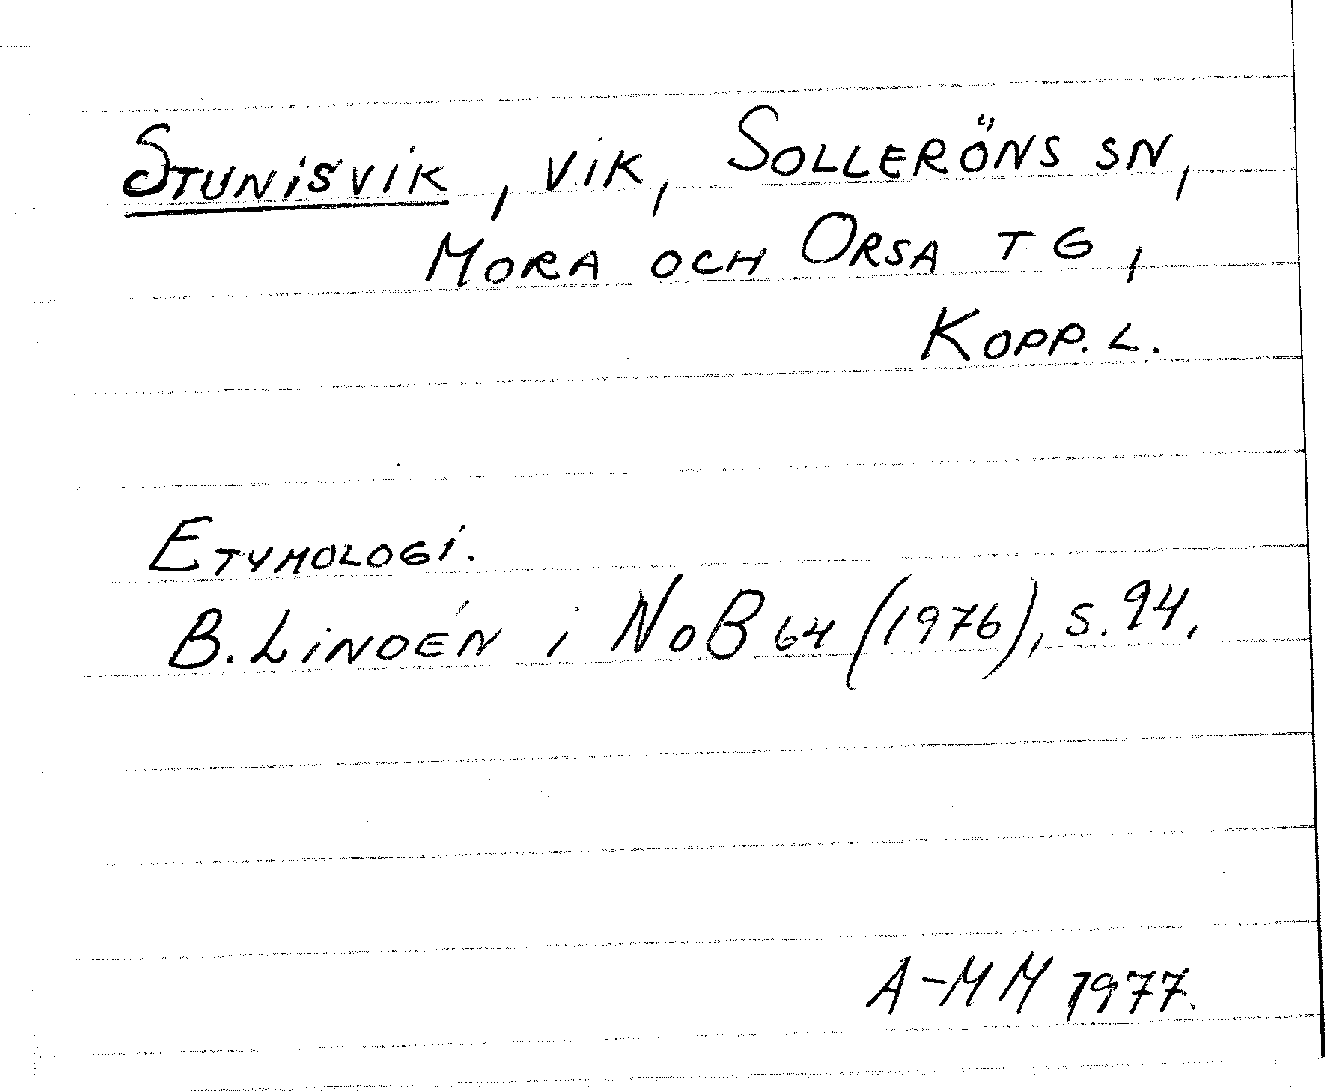 STUNISVIK, VIK, SOLLERÖNS SN,
MORA OCH ORSA TG,
KOPP. L.
ETYMOLOGI.
B. LINDÉN i NoB 64 (1976), s. 94.
A-MM 1977.